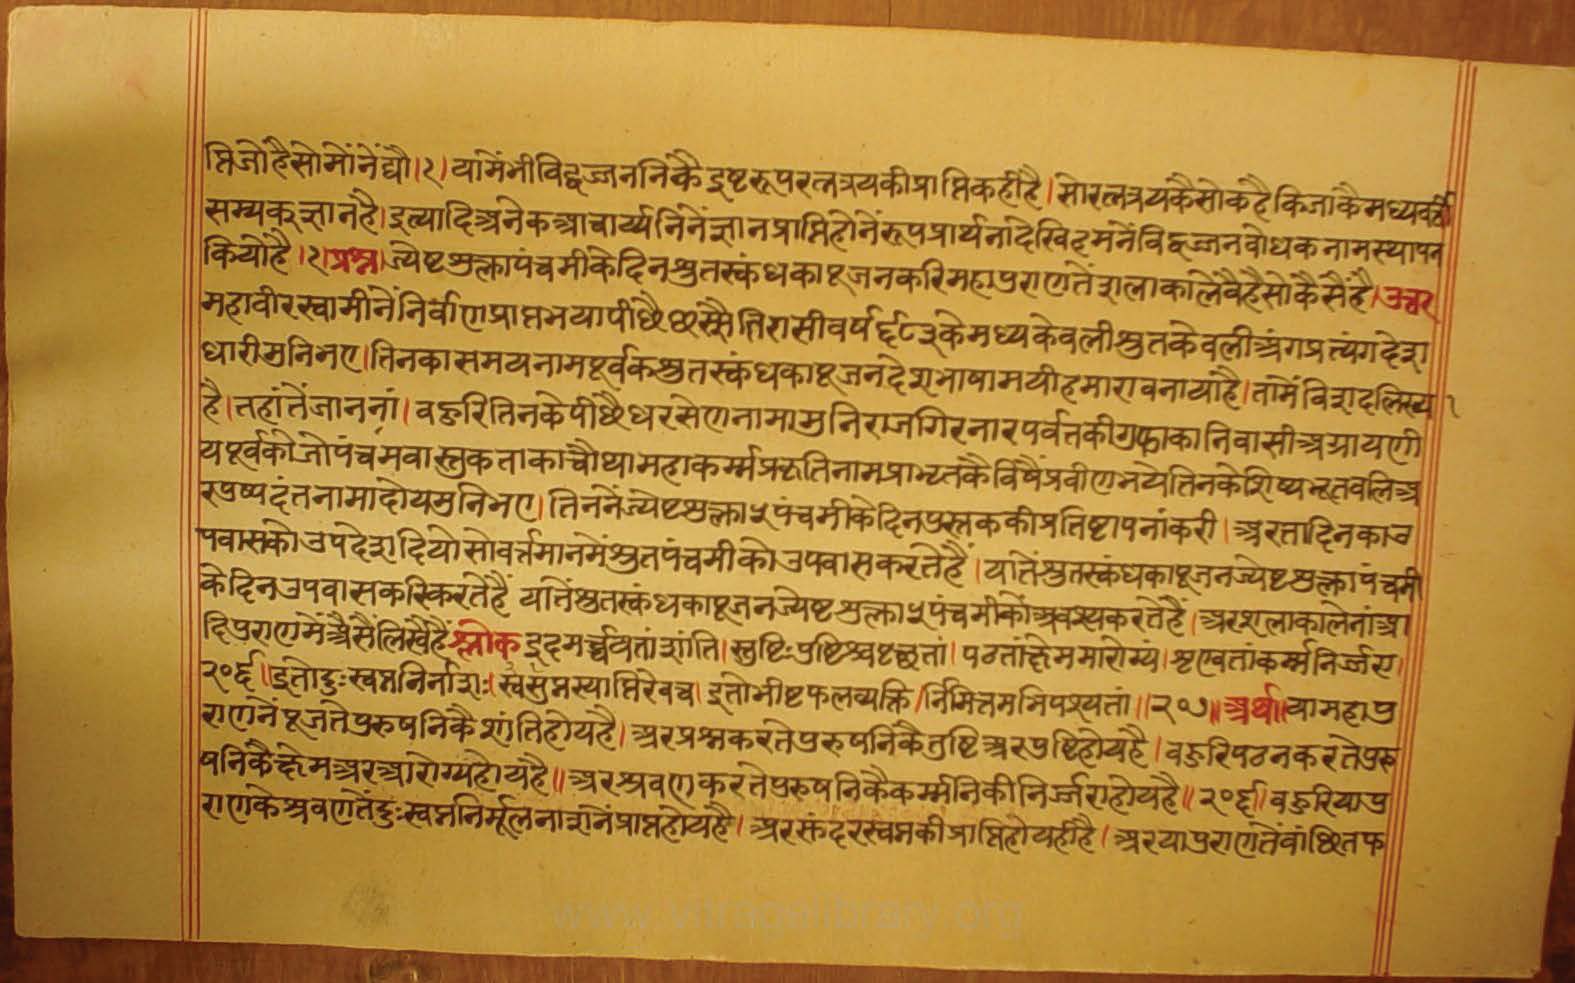 प्तिजोहैसोमोंनेंद्यौ।२। यामेंभीविद्वज्जननिकै इष्टरूपरत्नत्रयकीप्राप्तिकहीहै। सोरत्नत्रयकैसोकहै किजाकैमध्यवर्ती
सम्यक्ज्ञानहै। इत्यादिअनेकआचार्य्यनिनेंज्ञानप्राप्तिहोनेंरूपप्रार्थनादेखिहमनेंविद्वज्जनबोधकनामस्थापन
कियोहै।२।प्रश्न। ज्येष्टशुक्लापंचमीकेदिनश्रुतस्कंधकापूजनकरिमहापुराणतेंशलाकालेवैहैसोकैसैंहै। उत्तर
महावीरस्वामीनेंनिर्वाणप्राप्तभयापीछैछस्सैतिरासीवर्ष६८३केमध्यकेवलीश्रुतकेवलीअंगप्रत्यंगदेश
धारीमुनिभए। तिनकासमयनामपूर्वकश्रुतस्कंधकापूजनदेशभाषामयीहमाराबनायाहै। तामेंविशदलिख्या
है। तहांतेंजाननां। बहुरितिनकेपीछैधरसेणनामामुनिराजगिरनारपर्वतकीगुफाकानिवासीअग्रायणी
यपूर्वकीजोपंचमवास्तुकताकाचौथामहाकर्म्मप्रकृतिनामप्राभृतकैविषैंप्रवीणभयेतिनकेशिष्यभूतबलिअ
रपुष्पदंतनामादोयमुनिभए। तिननेंज्येष्टशुक्ला५पंचमीकेदिनपुस्तककीप्रतिष्टापनांकरी। अरतादिनकाउ
पवासकोउपदेशदियोसोवर्त्तमानमेंश्रुतपंचमीकोउपवासकरतेहैं। यातेंश्रुतस्कंधकापूजनज्येष्टशुक्लापंचमी
केदिनउपवासकरिकरतेहैं यातेंश्रुतस्कंधकापूजनज्येष्टशुक्ला५पंचमीकोंअवश्यकरतेहैं। अरशलाकालेनांआ
दिपुराणमेंअैसैलिखैहैं श्लोक इदमर्च्चयतांशांति। स्तुष्टिःपुष्टिश्चपृच्छतां। पठतांक्षेममारोग्यं। श्रृण्वतांकर्म्मनिर्ज्जरा।
२०६॥इतोदुःस्वप्ननिर्नाशः। स्वसुप्तस्याप्तिरेवच। इतोभीष्टफलव्यक्ति। र्निमित्तमभिपश्यतां॥२०७॥ अर्थ॥ यामहापु
राणनेंपूजतेपुरुषनिकैशांतिहोयहै। अरप्रश्नकरतेपुरुषनिकैतुष्टिअरपुष्टिहोयहै। बहुरिपठनकरतेपुरु
षनिकैक्षेमअरआरोग्यहोयहै॥ अरश्रवणकरतेपुरुषनिकैकर्म्मनिकीनिर्ज्जराहोयहै॥२०६॥ बहुरियापु
राणकेश्रवणतेंदुःस्वप्ननिर्मूलनाशनेंप्राप्तहोयहै। अरसुंदरस्वप्नकीप्राप्तिहोयहीहै। अरयापुराणतेंवांछितफ
www.vitragelibrary.org